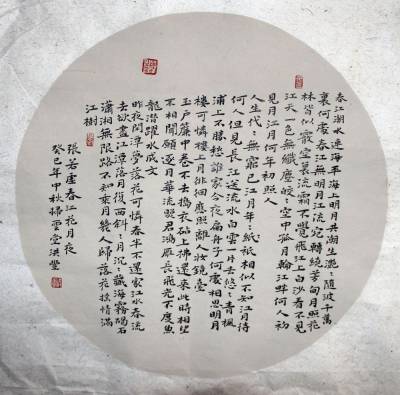 春江潮水連海平海上明月共潮生灔:隨波千萬
裏何處春江無明月江流宛轉繞芳甸月照花
林皆似霰空裏流霜不覺飛汀上白沙看不見
江天一色無纖塵皎:空中孤月輪江畔何人初
見月江月何年初照人
人生代:無窮已江月年:祇相似不知江月待
何人但見長江送流水白雲一片去悠:青楓
浦上不勝愁誰家今夜扁舟子何處相思明月
樓可憐樓上月徘徊應照離人妝鏡臺
玉戶簾中卷不去擣衣砧上拂還來此時相望
不相聞願逐月華流照君鴻雁長飛光不度魚
龍潛躍水成文
昨夜閑潭夢落花可憐春半不還家江水春流
去欲盡江潭落月復西斜:月沉:藏海霧碣石
瀟湘無限路不知乘月幾人歸落花搖情滿
江樹
張若虛春江花月夜
癸巳年中秋掃雲堂洪